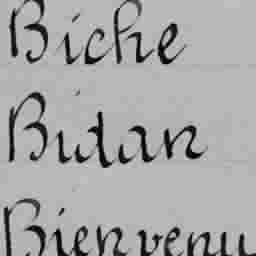 Biche
Bidan
Bienvenu